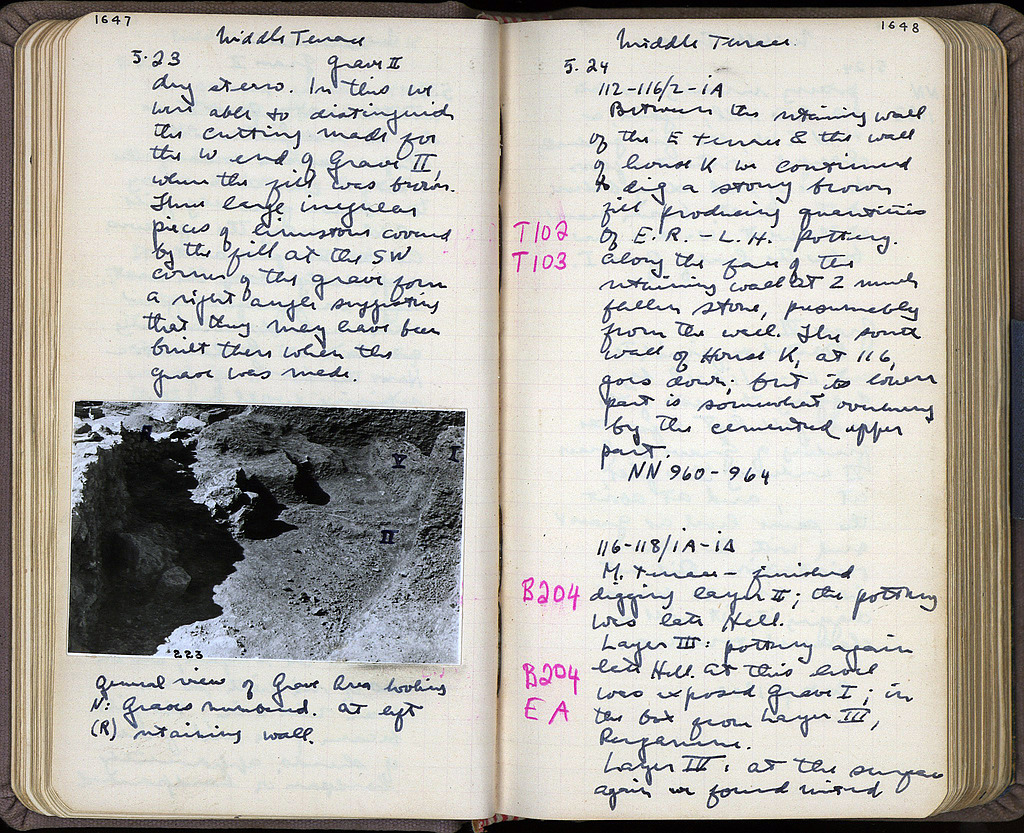 1647
Middle Terrace
5.23 Grave II
dug stereo. In this we
were able to distinguish
the cutting made for
the W end of Grave II,
where the fill was brown.
Three large irregular
pieces of limestone covered
by the fill at the SW
corner of the grave form
a right angle suggesting
that they may have been
built there when the
grave was made.
V I
II
223
General view of Grave Area looking
N: Graves numbered. At left
(R) retaining wall.
1648
Middle Terrace.
5.24
112-116/2-iA
Between the retaining wall
of the E Terrace & the wall
of house K we continued
to dig a stony brown
fill producing quantities
T102 of E.R. - L.H. pottery.
T103 Along the face of the
retaining wall at 2 much
fallen stone, presumably
from the wall. The south
wall of House K, at 116,
goes down; but its lower
part is somewhat overhung
by the cemented upper
part.
NN 960-964
116-118/iA-iΔ
M. Terrace - finished
B204 digging layer II; the pottery
was late Hell.
Layer III: pottery again
B204 late Hell. At this level
EA was exposed Grave I; in
the box from Layer III,
Pergamene.
Layer IV: at the surface
again we found mixed